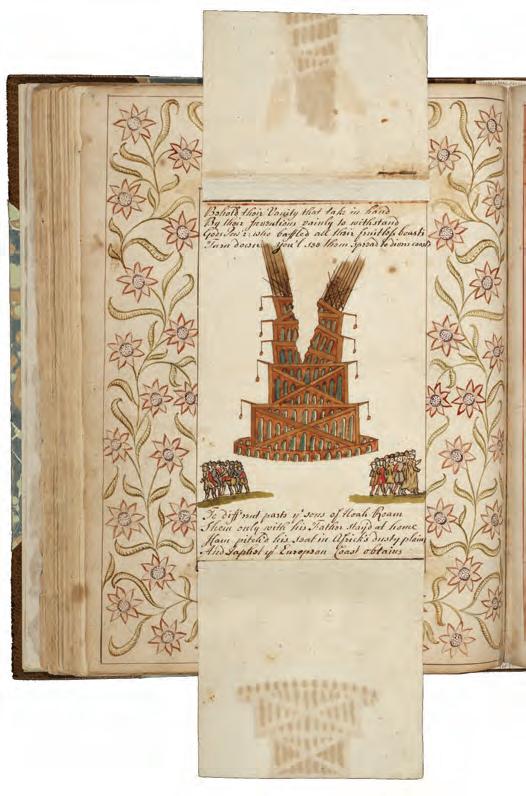 Behold their Vanity that take in hand
By their inventions vainly to withstand
Gods Pow'r: who baffled all their fruitless boasts
Turn down you'l see them spread to divers coasts
To diff'rent parts yᵉ sons of Noah Roam
Shem only with his Father stay'd at home
Ham pitch'd his seat in Africk's dusty plain
And Japhet yᵉ European Coast obtains